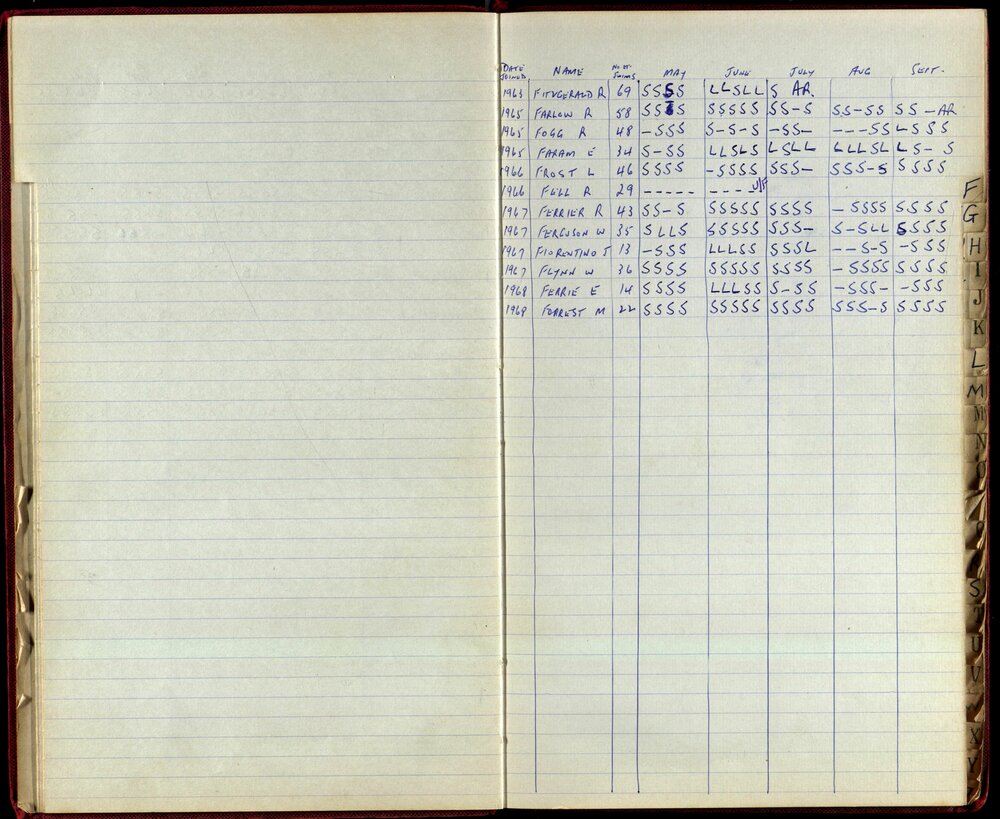 DATE JOINED NAME No OF SWIMS MAY JUNE JULY AUG SEPT.
1963 FITZGERALD R 69 SSSS LLSLL S AR
1965 FARLOW R 58 SSS SSSSS SS-S SS-SS SS-AR
1965 FOGG R 48 -SSS S-S-S -SS- ---SS LSSS
1965 FARAM E 34 S-SS LLSLS LSLL LLLSL LS-S
1966 FROST L 46 SSSS -SSSS SSS- SSS-S SSSS
1966 FELL R 29 ----- ---- U/F
1967 FERRIER R 43 SS-S SSSSS SSSS -SSSS SSSS
1967 FERGUSON W 35 SLLS SSSSS SSS- S-SLL SSSS
1967 FIORENTINO J 13 -SSS LLLSS SSSL --S-S -SSS
1967 FLYNN W 36 SSSS SSSSS SSSS -SSSS SSSS
1968 FERRIE E 14 SSSS LLLSS S-SS -SSS- -SSS
1969 FORREST M 22 SSSS SSSSS SSSS SSS-S SSSS
F
G
H
I
J
K
L
M
N
S
U
V
X
Y